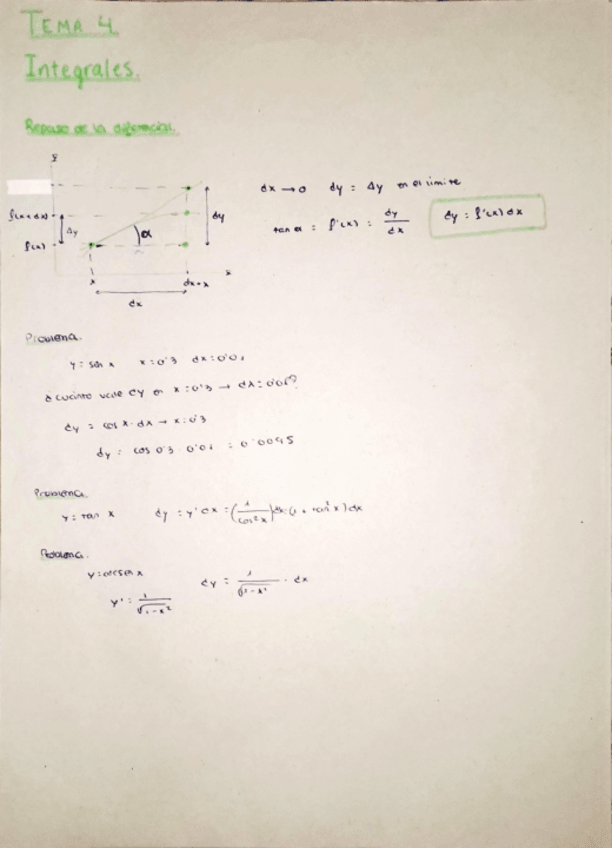 TEMA 4
Integrales.
Repaso de la diferencial.
y
f(x+dx)
Δy
dy
f(x)
α
x
x
dx+x
dx
dx → 0 dy = Δy en el límite
tan α = f'(x) = dy/dx
dy = f'(x) dx
Problema.
y = sen x x = 0'3 dx = 0'01
¿Cuánto vale dy en x = 0'3 → dx = 0'01?
dy = cos x · dx → x = 0'3
dy = cos 0'3 · 0'01 = 0'0095
Problema.
y = tan x dy = y' dx = (1/cos²x) dx = (1 + tan²x) dx
Problema.
y = arcsen x
y' = 1/√1-x²
dy = 1/√1-x² · dx